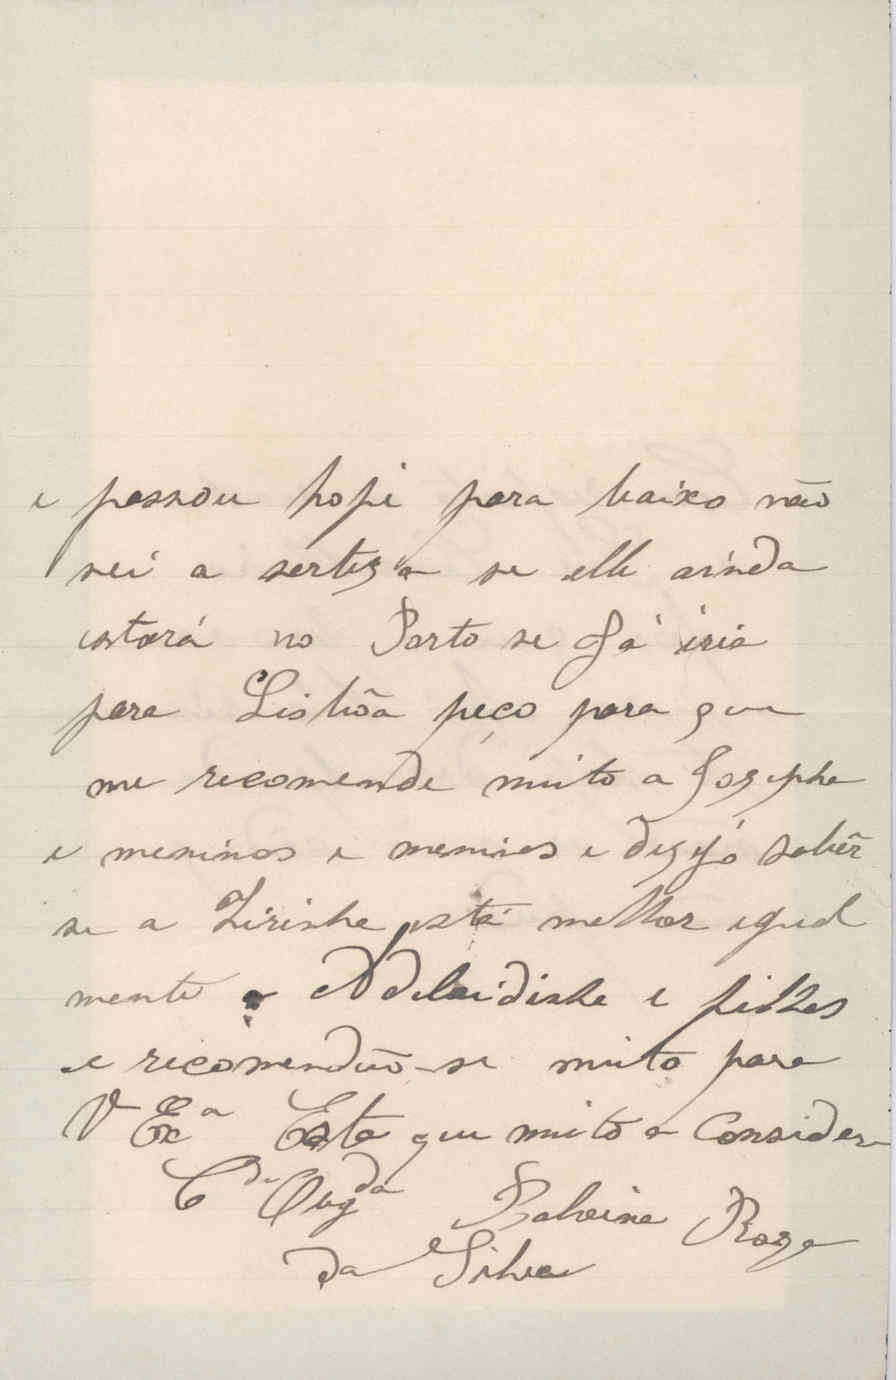 e passou hoje para baixo não
sei a serteza se elle ainda
estará no Porto se Já iria
para Lisbõa peço para que
me recomende muito a Jozepha
e meninos e meninas e dezejo sabêr
se a Zirinha está melhor egual
mente a Adelaidinha e filhas
e recomendão-se muito para
V Exª Esta que muito a Consider
Cde Obgda Balvina Roza
da Silva